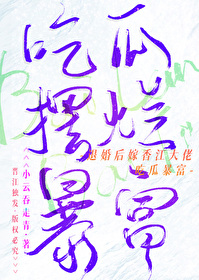 吃瓜
摆烂
暴富
退婚后嫁香江大佬
吃瓜暴富-
<<<小云春走青·著>>>
晋江独发 版权必究>>>